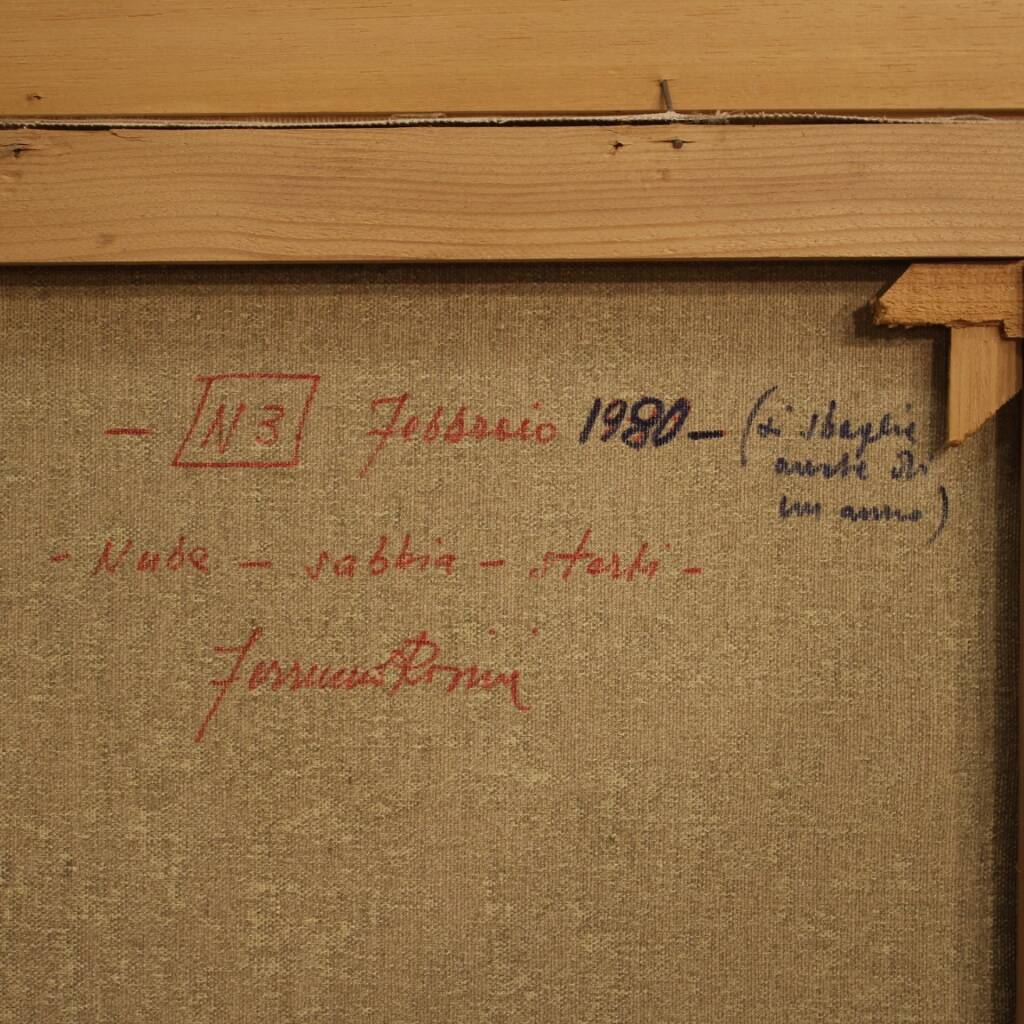 — N 3 Febbraio 1980 — (si sbaglia
anche di
un anno)
- Nube — sabbia — sterpi -
Ferruccio Rossini